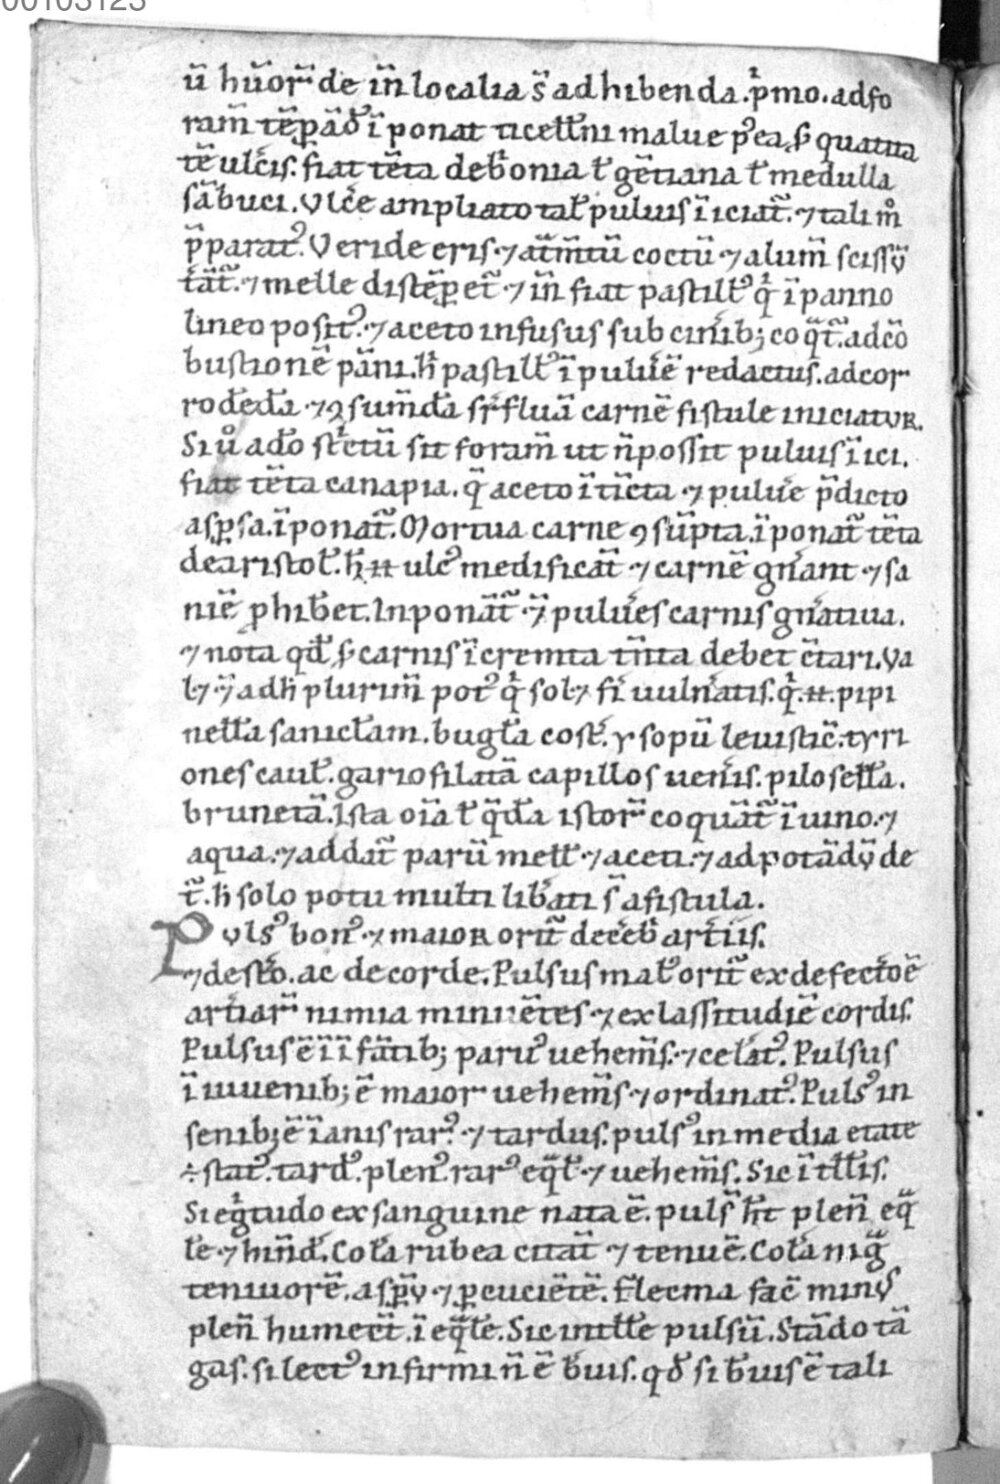 00103123
ũ hũoꝝ̃ de ĩn localia s̃ adhibenda. pͥmo. ad fo
ram̃ tẽꝑãdͦ ĩponat ticełłni malue p͛ea. ꝓ quatua
tẽ ulc̓is. fiat tẽta deb̓onia ł gẽtiana ł medulla
sãbuci. Vlc̓e ampliato tał puluis ĩiciat̃. ⁊ tali mͦ
p̃parat͛. Veride eris. ⁊ at̃m̃tũ coctũ ⁊ alum̃ scissũ
t̃at̃. ⁊ melle distẽꝑet̃ ⁊ ĩn fiat pastilł͛ qͥ ĩ panno
lineo posit͛. ⁊ aceto infusus sub cinib; coq̃t̃. ad cõ
bustionẽ pãni. h̵ pastilł͛ ĩ puluẽ redactus. ad cor
rodẽdã ⁊ ꝯsum̃dã sr̃fluã carnẽ fistule iniciatur.
Si uͦ ado stͥctũ sit foram̃ ut ñ possit puluis ĩici.
fiat tẽta canapia. q̃ aceto ĩticta ⁊ puluẽ p̃dicto
asꝑsa. ĩponat̃. Mortua carne ꝯsũpta. ĩponat̃ tẽta
de aristoł. h̵ ulc͛ medificat̃ ⁊ carnẽ gn̓ant ⁊ sa
niẽ phib̓et. Inponãt̃ ⁊̃ puluẽs carnis gn̓atiua.
⁊ nota qđ ꝓ carnis ĩcremta tm̃ta debet c̃tari. Va
l⁊ ⁊̃ ad h̵ plurim̃ pot͛ qͥ sol⁊ fĩ uuln̓atis. qͥ. pipi
nełła saniclam. bugła cost̓. ysopũ leuistic̃. tyri
ones cauł. gariofilatã capillos ueñis. pilosełła.
brunetã. Ista oĩa ł q̃đa istoꝝ coquãt̃ ĩ uino. ⁊
aqua. ⁊ addat̃ parũ mełł ⁊ aceti. ⁊ ad potãdũ de
t̃. h̵ solo potu multi lib̓ati s̃ a fistula.
Pvls͛ bon͛ ⁊ maior orit̃ de cẽeb̓ artĩis.
⁊ de stͦo. ac de corde. Pulsus mał͛ orit̃ ex defectͦoẽ
artiaꝝ̃ nimia minuẽtes. ⁊ ex lassitudiẽ cordis.
Pulsus ẽ ĩ ĩfãtib; paru͛ uehem̃s. ⁊ cel̓at͛. Pulsus
ĩ iuuenib; ẽ maior uehem̃s ⁊ ordinat͛. Puls͛ in
senib; ẽ ĩanis rar͛. ⁊ tardus. puls͛ in media etate
÷ stat͛. tard͛. plen͛. rar͛ eq̃ł͛ ⁊ uehem̃s. Sic ĩtłłis.
Si egͥtudo ex sanguine nata ẽ. puls̃ h̃t pleñ eq̃
łe ⁊ hm̃d̓. Coła rubea citat̃ ⁊ tenuẽ. Coła nig̃
teniuorẽ. asꝑũ ⁊ ꝑcuciẽtẽ. Flecma fac̃ minꝰ
pleñ humect̃. ĩeq̃łe. Sic intłłe pulsũ. Stãdo tã
gas. si lect͛ infirmi ñ ẽ b̓uis. qđ si b̓uis ẽ tali